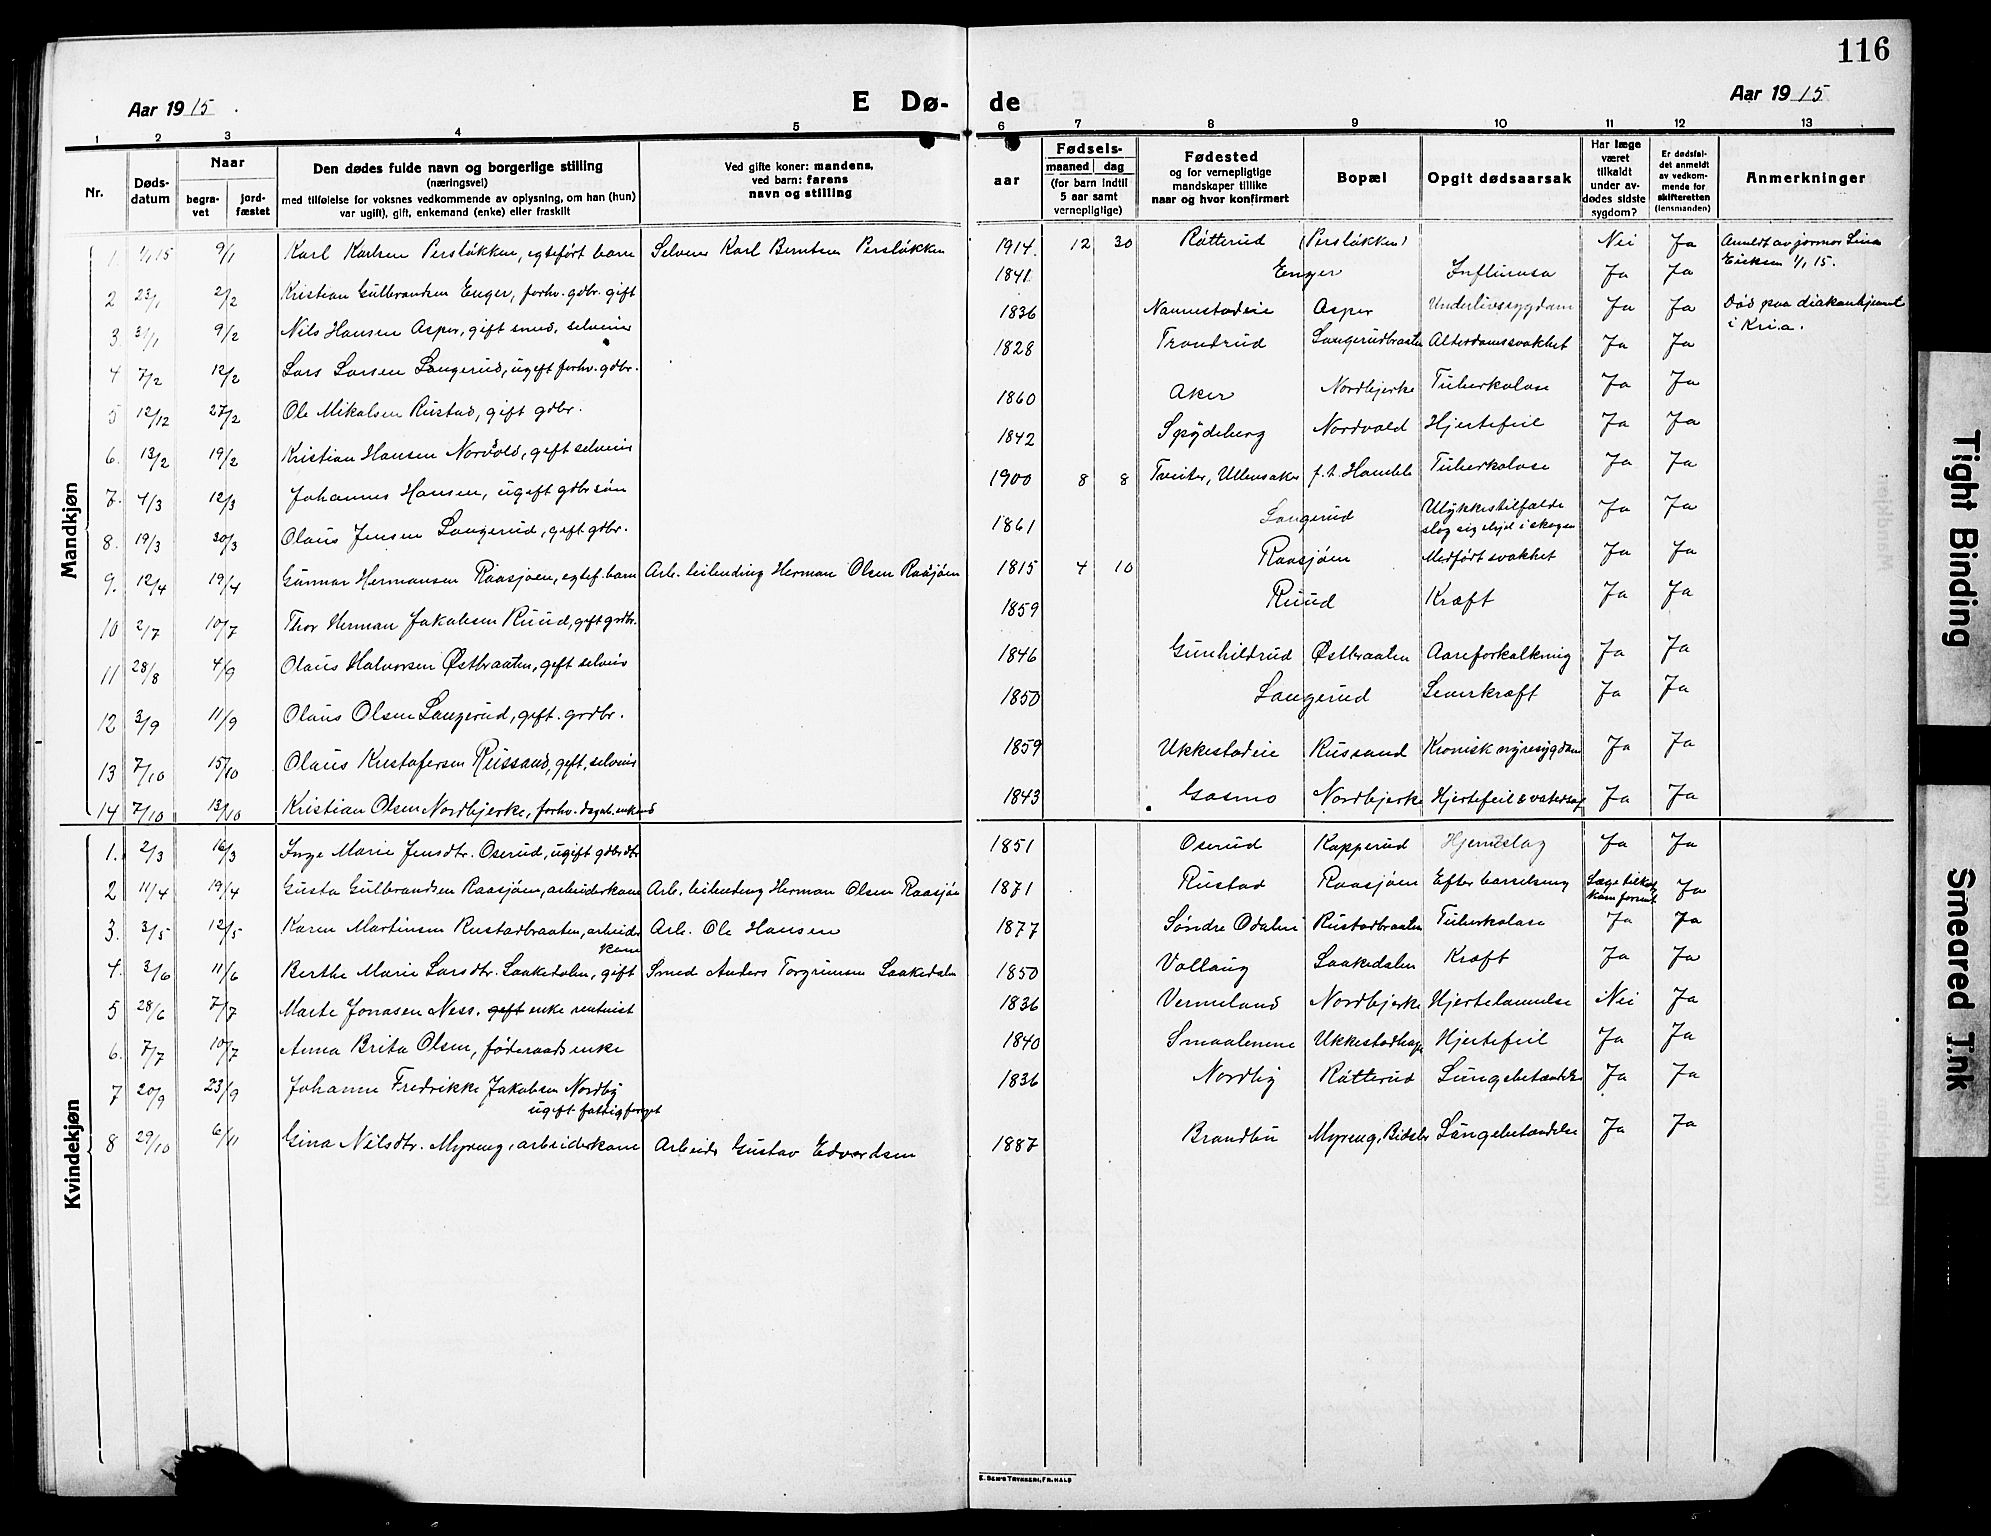 116
Aar 1915. E Dø- de Aar 1915
1 2 3 4 5 6 7 8 9 10 11 12 13
Nr. Døds-datum Naar begra-vet jord-fæstet Den dødes fulde navn og borgerlige stilling (næringsvei) med tilføielse for voksnes vedkommende av oplysning, om han (hun) var ugift), gift, enkemand (enke) eller fraskilt Ved gifte koner: mandens, ved barn: farens navn og stilling aar Fødsels- maaned dag (for barn indtil 5 aar samt vernepligtige) Fødested og for vernepligtige mandskaper tillike naar og hvor konfirmert Bopæl Opgit dødsaarsak Har læge været tilkaldt under av-dødes sidste sygdom? Er dødsfal-det anmeldt av vedkom-mende for skifteretten (lensmanden) Anmerkninger
Mandkjøn
1. 1/1 15 9/1 Karl Karlsen Persløkken, egtefört barn Selveier Karl Berntsen Persløkken 1914 12 30 Råtterud (Persløkken) Nei Ja Anmeldt av jormor Lina Eriksen 1/1 15.
2 23/1 2/2 Kristian Gulbrandsen Enger, forhv. gdbr. gift 1841. Enger Influensa Ja Ja
3. 31/1 9/2 Nils Hansen Asper, gift smed, selveier 1836 Nannestadeie Asper Underlivssygdom Ja Ja Död paa diakonhjemmet i Kria.
4 7/2 12/2 Lars Larsen Langerud, ugift forhv. gdbr. 1828 Trondrud Langerudbraaten Alderdomssvakhet Ja Ja
5 12/12 27/2 Ole Mikalsen Rustad, gift gdbr. 1860 Aker Nordbjerke Tuberkolose Ja Ja
6. 13/2 19/2 Kristian Hansen Norvold, gift selveier 1842 Spydeberg Nordvold Hjertefeil Ja Ja
7. 4/3 12/3 Johannes Hansen, ugift gdbr. sön 1900 8 8 Tveiter, Ullensaker f. t. Tuberkolose Ja Ja
8. 19/3 30/3 Olaus Jensen Langerud, gift gdbr. 1861 Langerud Ulykkestilfælde slog sig ihjel i skogen Ja Ja
9. 12/4 19/4 Gunnar Hermansen Raasjøen, egtef. barn Arb. leilending Herman Olsen Raasjøen 1815 4 10 Raasjøen Medfört svakhet Ja Ja
10 2/7 10/7 Thor Herman Jakobsen Ruud, gift grdbr. 1859 Ruud Kræft Ja Ja
11 28/8 4/9 Olaus Halvorsen Østbraaten, gift selveier 1846 Gunhildrud Østbraaten Aareforkalkning Ja Ja
12 3/9 11/9 Olaus Olsen Langerud, gift. grdbr. 1850 Langerud Leverkræft Ja Ja
13 7/10 15/10 Olaus Kristofersen Russand, gift, selveier 1859 Ukkestadeie Russand Kronisk nyresygdom Ja Ja
14 7/10 13/10 Kristian Olsen Nordbjerke, forhv. dagarb. enkemd 1843 Gosmo Nordbjerke Hjertefeil & vatersot Ja Ja
Kvindekjøn
1. 2/3 16/3 Inge Marie Jensdtr. Oserud, ugift gdbrdtr 1851 Oserud Kopperud Hjerneslag Ja Ja
2 11/4 19/4 Gusta Gulbrandsen Raasjøen, arbeiderkone Arb. leilending Herman Olsen Raasjøen 1871 Rustad Raasjøen Efter barselseng Læge tilkaldt, kom forsent Ja
3. 3/5 12/5 Karen Martinsen Rustadbraaten, arbeider kone Arb. Ole Hansen 1877 Søndre Odalen Rustadbraaten Tuberkolose Ja Ja
4. 3/6 11/6 Berthe Marie Larsdtr. Laakedalen, gift Smed Anders Torgrimsen Laakedalen 1850 Vollaug Laakedalen Kræft Ja Ja
5 28/6 7/7 Marte Jonasen Ness. gift enke rentenist 1836 Vermeland Nordbjerke Hjertelammelse Nei Ja
6. 7/7 10/7 Anna Brita Olsen, föderaads enke 1840 Smaalenene Ukkestadhagen Hjertefeil Ja Ja
7 20/9 23/9 Johanne Fredrikke Jakobsen Nordby ugift fattigforsørget 1836 Nordby Råtterud Lungebetændelse Ja Ja
8 29/10 6/11 Gina Nilsdtr. Myreng, arbeiderkone Arbeider Gustav Edvardsen 1887 Brandbu Myreng, Bidsler Lungebetændelse Ja Ja
E. SEM'S TRYKKERI, FR.HALD
Tight Binding
Smeared Ink